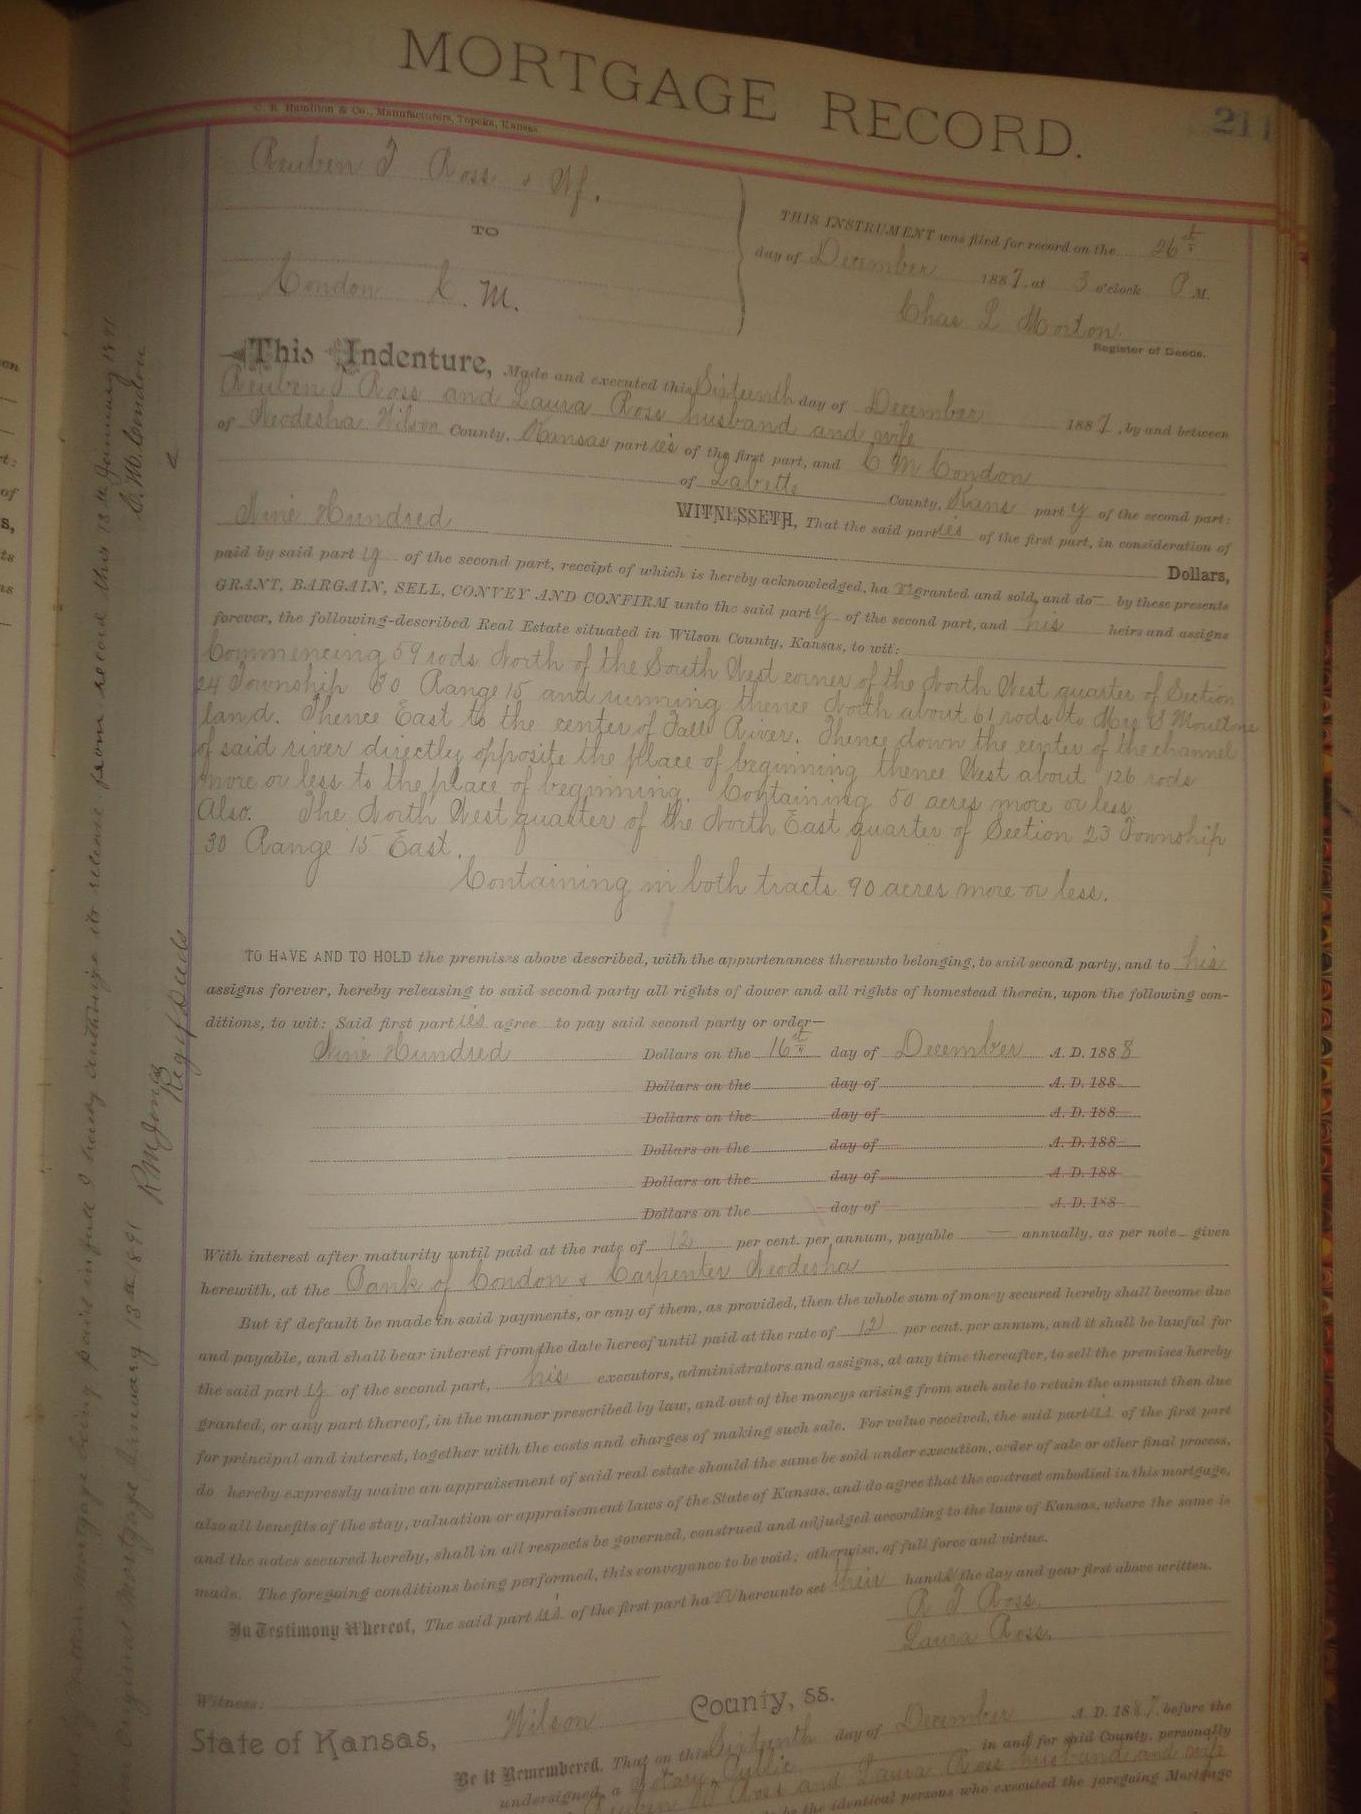 MORTGAGE RECORD.
211
C. B. Hamilton & Co., Manufacturers, Topeka, Kansas
Reuben T Ross & Wf.
TO
Condon C. M.
THIS INSTRUMENT was filed for record on the 26th
day of December 1887, at 3 o'clock P M.
Chas L Morton
Register of Deeds.
This Indenture, Made and executed this Sixteenth day of December 1887, by and between
Reuben T Ross and Laura Ross husband and wife
of Neodesha Wilson County, Kansas parties of the first part, and C M Condon
of Labette County, Kans party of the second part:
WITNESSETH, That the said parties of the first part, in consideration of
Nine Hundred Dollars,
paid by said party of the second part, receipt of which is hereby acknowledged, ha granted and sold, and do by these presents
GRANT, BARGAIN, SELL, CONVEY AND CONFIRM unto the said party of the second part, and his heirs and assigns
forever, the following-described Real Estate situated in Wilson County, Kansas, to wit:
Commencing 59 rods North of the South West corner of the North West quarter of Section
24 Township 30 Range 15 and running thence North about 61 rods to Moultons
land. Thence East to the center of Fall River. Thence down the center of the channel
of said river directly opposite the place of beginning thence West about 126 rods
more or less to the place of beginning. Containing 50 acres more or less
Also. The North West quarter of the North East quarter of Section 23 Township
30 Range 15 East.
Containing in both tracts 90 acres more or less.
TO HAVE AND TO HOLD the premises above described, with the appurtenances thereunto belonging, to said second party, and to his
assigns forever, hereby releasing to said second party all rights of dower and all rights of homestead therein, upon the following con-
ditions, to wit: Said first parties agree to pay said second party or order—
Nine Hundred Dollars on the 16th day of December A. D. 1888
Dollars on the day of A. D. 188
Dollars on the day of A. D. 188
Dollars on the day of A. D. 188
Dollars on the day of A. D. 188
Dollars on the day of A. D. 188
With interest after maturity until paid at the rate of 12 per cent. per annum, payable — annually, as per note given
herewith, at the Bank of Condon & Carpenter Neodesha
But if default be made in said payments, or any of them, as provided, then the whole sum of money secured hereby shall become due
and payable, and shall bear interest from the date hereof until paid at the rate of 12 per cent. per annum, and it shall be lawful for
the said party of the second part, his executors, administrators and assigns, at any time thereafter, to sell the premises hereby
granted, or any part thereof, in the manner prescribed by law, and out of the moneys arising from such sale to retain the amount then due
for principal and interest, together with the costs and charges of making such sale. For value received, the said parties of the first part
do hereby expressly waive an appraisement of said real estate should the same be sold under execution, order of sale or other final process,
also all benefits of the stay, valuation or appraisement laws of the State of Kansas, and do agree that the contract embodied in this mortgage,
and the notes secured hereby, shall in all respects be governed, construed and adjudged according to the laws of Kansas, where the same is
made. The foregoing conditions being performed, this conveyance to be void; otherwise, of full force and virtue.
In Testimony Whereof, The said parties of the first part have hereunto set their hands the day and year first above written.
R T Ross.
Laura Ross.
Witness:
State of Kansas, Wilson County, ss.
Be it Remembered, That on this Sixteenth day of December A. D. 1887, before the
undersigned, a Notary Public in and for said County, personally
Ross and Laura Ross husband and wife
the identical persons who executed the foregoing Mortgage
mortgage being paid in full I hereby authorize its release from record this 13th January 1891
C. M. Condon
Original Mortgage January 13th 1891
R M Jones
Reg of Deeds